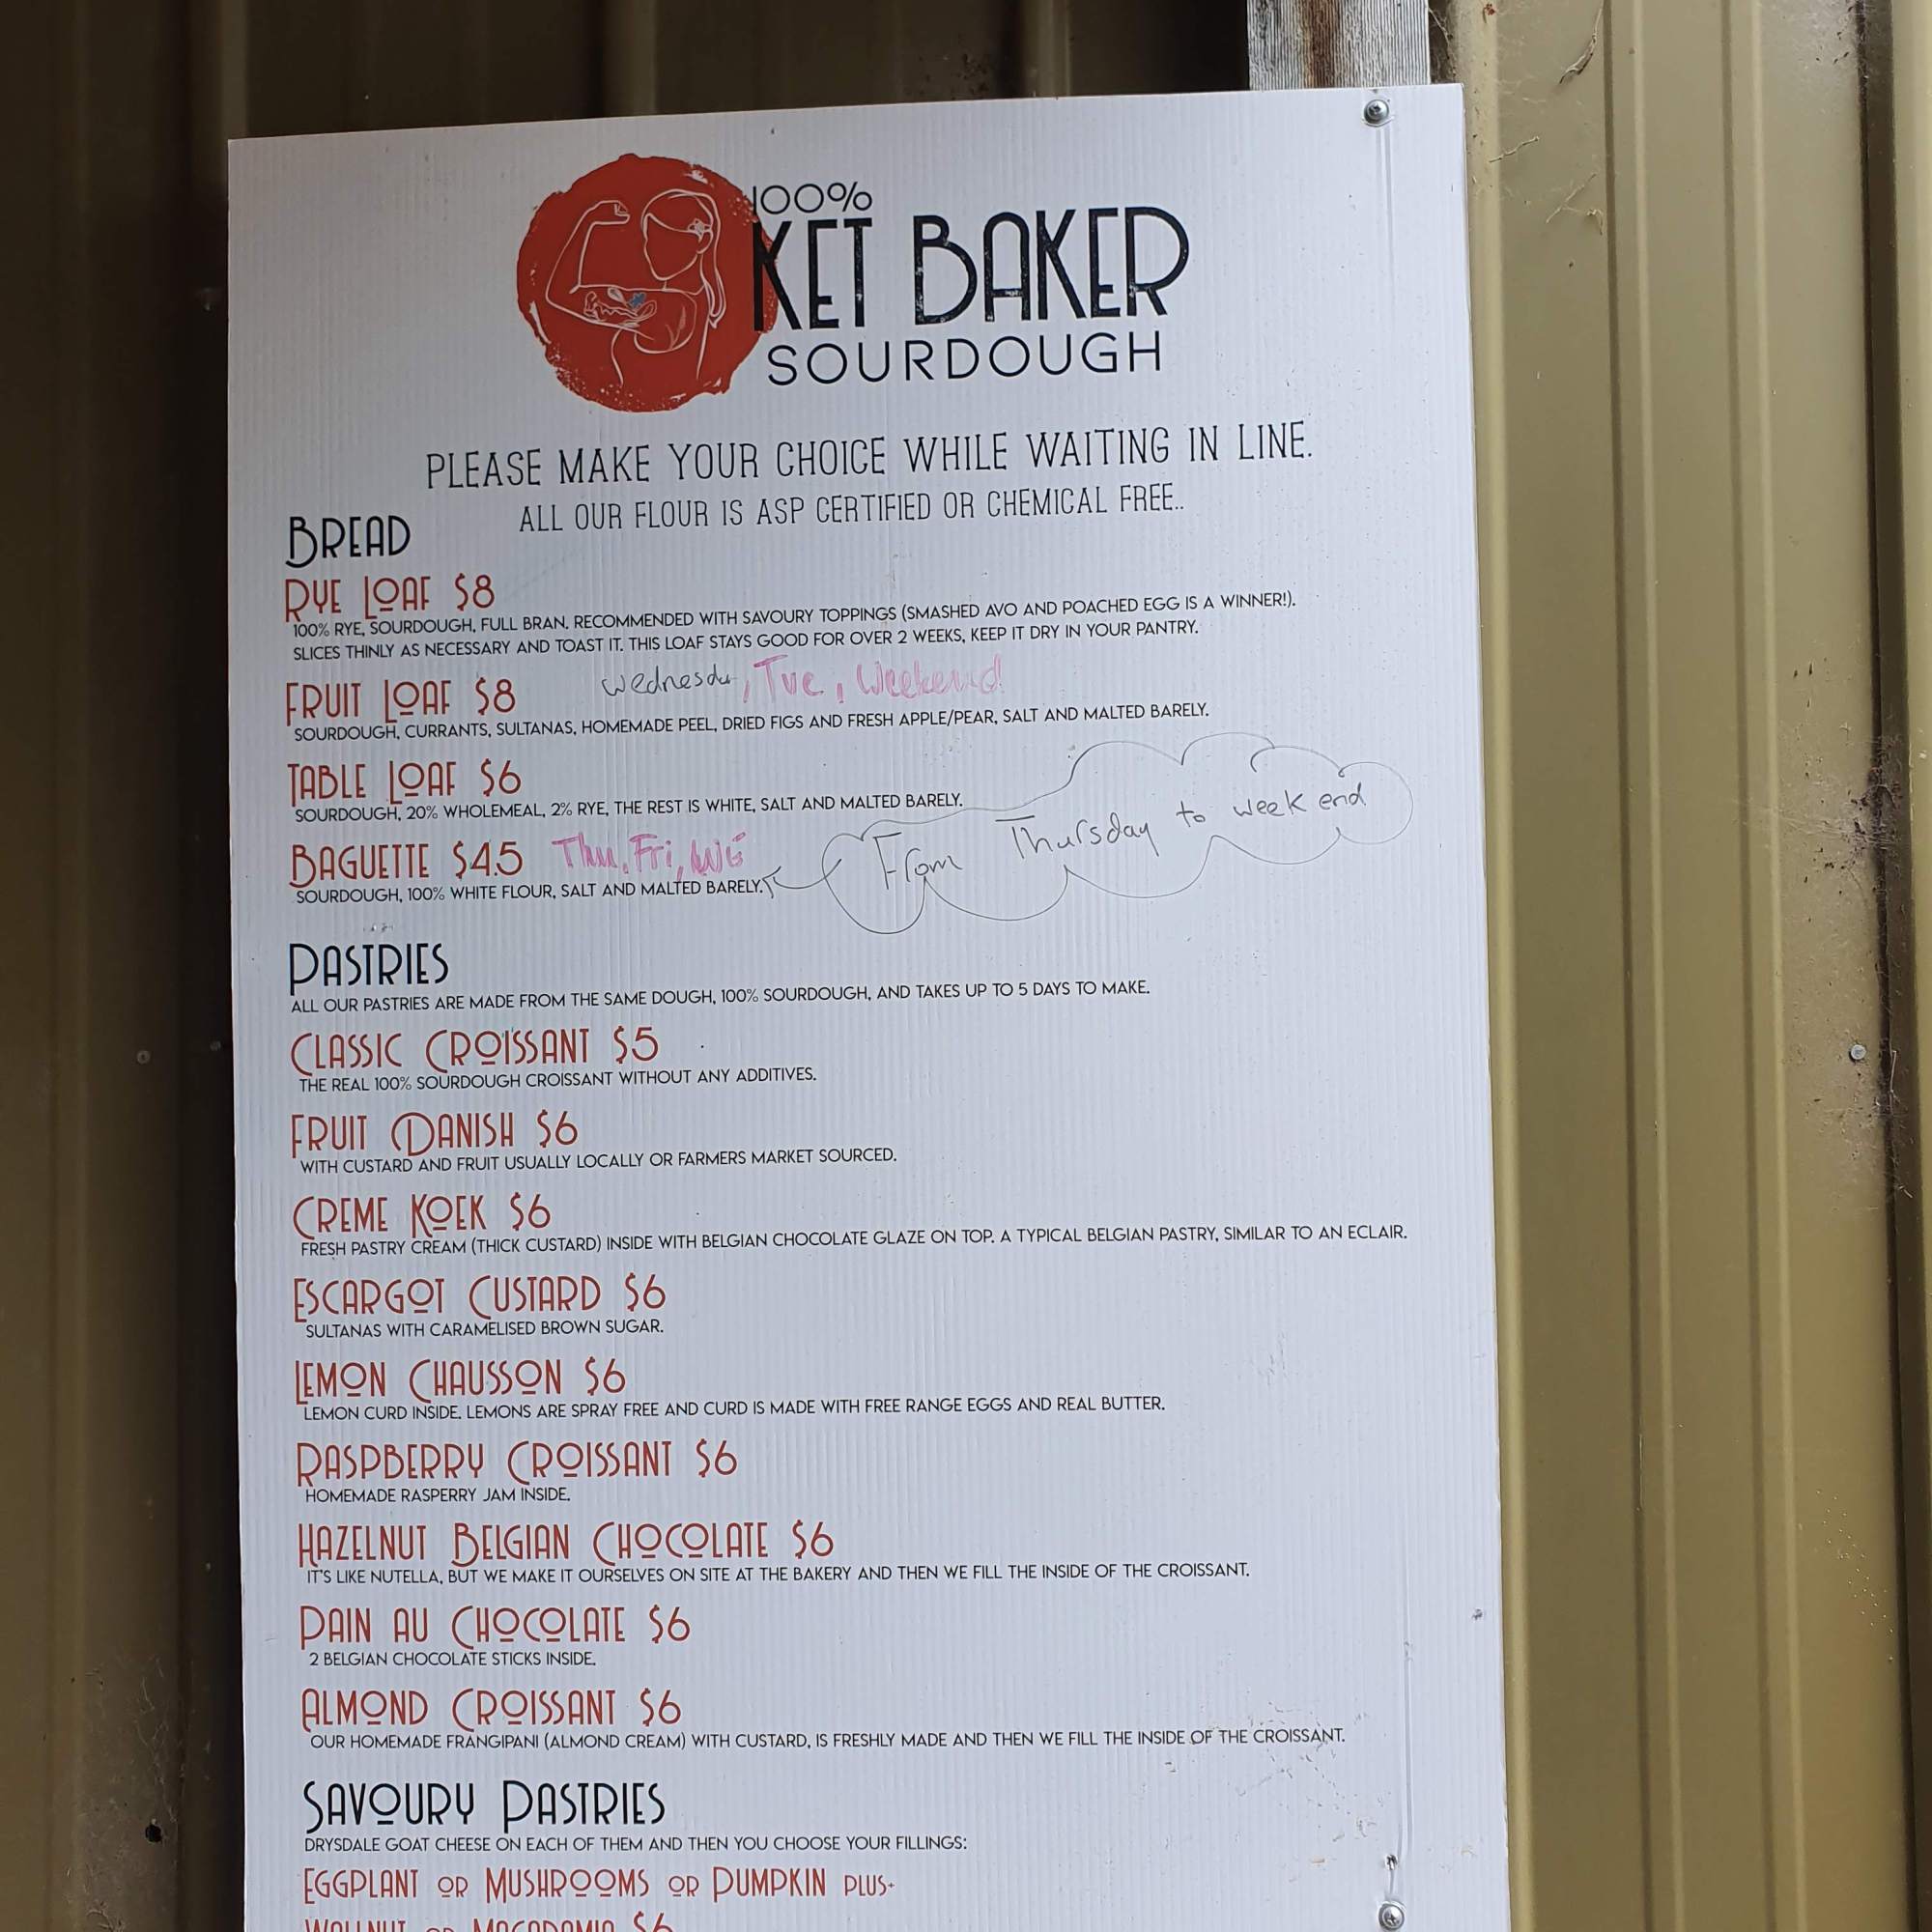 100%
KET BAKER
SOURDOUGH
PLEASE MAKE YOUR CHOICE WHILE WAITING IN LINE.
ALL OUR FLOUR IS ASP CERTIFIED OR CHEMICAL FREE..
BREAD
RYE LOAF $8
100% RYE, SOURDOUGH, FULL BRAN. RECOMMENDED WITH SAVOURY TOPPINGS (SMASHED AVO AND POACHED EGG IS A WINNER!).
SLICES THINLY AS NECESSARY AND TOAST IT. THIS LOAF STAYS GOOD FOR OVER 2 WEEKS, KEEP IT DRY IN YOUR PANTRY.
FRUIT LOAF $8 Wednesday, Tue, Weekend!
SOURDOUGH, CURRANTS, SULTANAS, HOMEMADE PEEL, DRIED FIGS AND FRESH APPLE/PEAR, SALT AND MALTED BARELY.
TABLE LOAF $6
SOURDOUGH, 20% WHOLEMEAL, 2% RYE, THE REST IS WHITE, SALT AND MALTED BARELY.
BAGUETTE $4.5 Thu, Fri, WE From Thursday to week end
SOURDOUGH, 100% WHITE FLOUR, SALT AND MALTED BARELY.
PASTRIES
ALL OUR PASTRIES ARE MADE FROM THE SAME DOUGH, 100% SOURDOUGH, AND TAKES UP TO 5 DAYS TO MAKE.
CLASSIC CROISSANT $5
THE REAL 100% SOURDOUGH CROISSANT WITHOUT ANY ADDITIVES.
FRUIT DANISH $6
WITH CUSTARD AND FRUIT USUALLY LOCALLY OR FARMERS MARKET SOURCED.
CREME KOEK $6
FRESH PASTRY CREAM (THICK CUSTARD) INSIDE WITH BELGIAN CHOCOLATE GLAZE ON TOP. A TYPICAL BELGIAN PASTRY, SIMILAR TO AN ECLAIR.
ESCARGOT CUSTARD $6
SULTANAS WITH CARAMELISED BROWN SUGAR.
LEMON CHAUSSON $6
LEMON CURD INSIDE. LEMONS ARE SPRAY FREE AND CURD IS MADE WITH FREE RANGE EGGS AND REAL BUTTER.
RASPBERRY CROISSANT $6
HOMEMADE RASPERRY JAM INSIDE.
HAZELNUT BELGIAN CHOCOLATE $6
IT'S LIKE NUTELLA, BUT WE MAKE IT OURSELVES ON SITE AT THE BAKERY AND THEN WE FILL THE INSIDE OF THE CROISSANT.
PAIN AU CHOCOLATE $6
2 BELGIAN CHOCOLATE STICKS INSIDE.
ALMOND CROISSANT $6
OUR HOMEMADE FRANGIPANI (ALMOND CREAM) WITH CUSTARD, IS FRESHLY MADE AND THEN WE FILL THE INSIDE OF THE CROISSANT.
SAVOURY PASTRIES
DRYSDALE GOAT CHEESE ON EACH OF THEM AND THEN YOU CHOOSE YOUR FILLINGS:
EGGPLANT OR MUSHROOMS OR PUMPKIN PLUS+
WALLNUT OR MACADAMIA $6